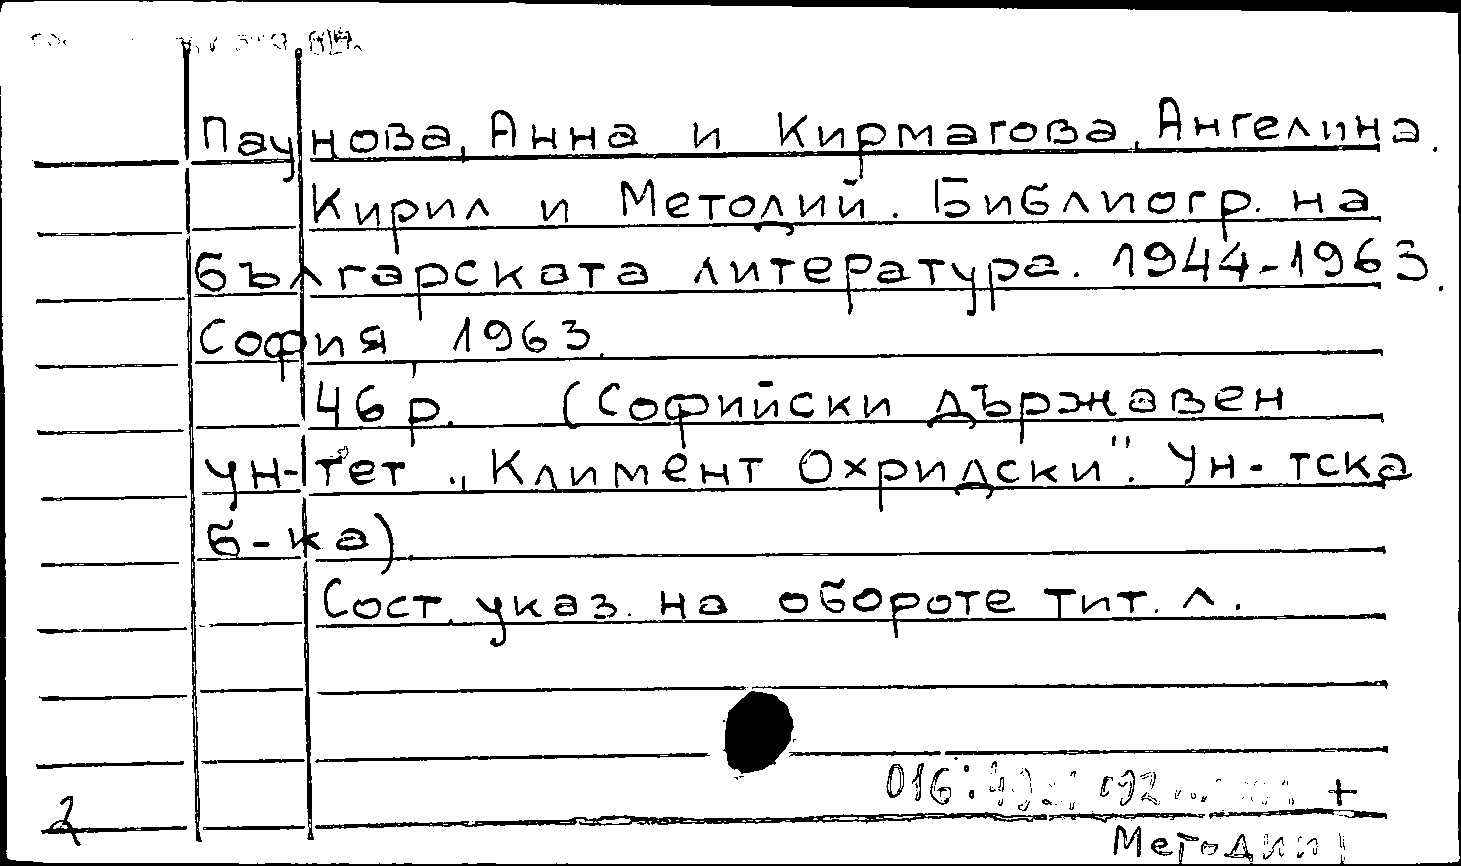 Паунова, Анна и Кирмагова, Ангелина.
Кирил и Методий. Библиогр. на
българската литература. 1944-1963.
София, 1963.
46 р. (Софийски държавен
ун-тет „Климент Охридски". Ун-тска
б-ка).
Сост. указ. на обороте тит. л.
016:
+
2
Методий